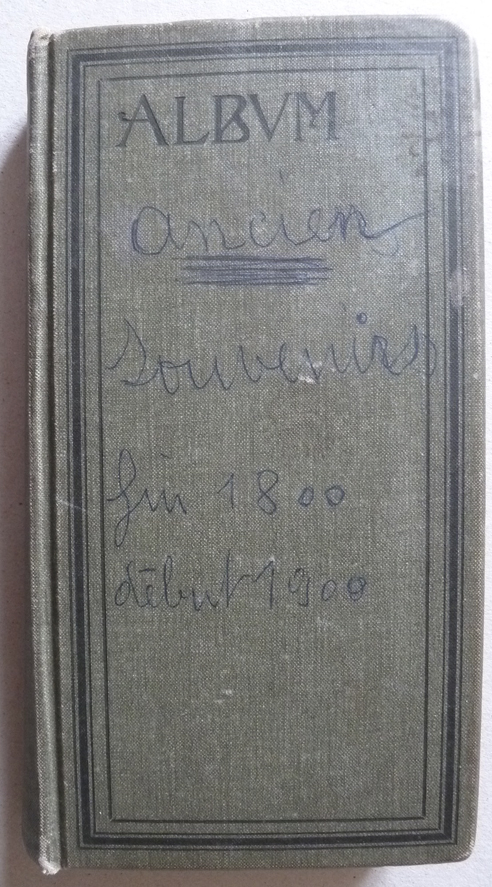 ALBVM
ancien
Souvenirs
fin 1800
début 1900